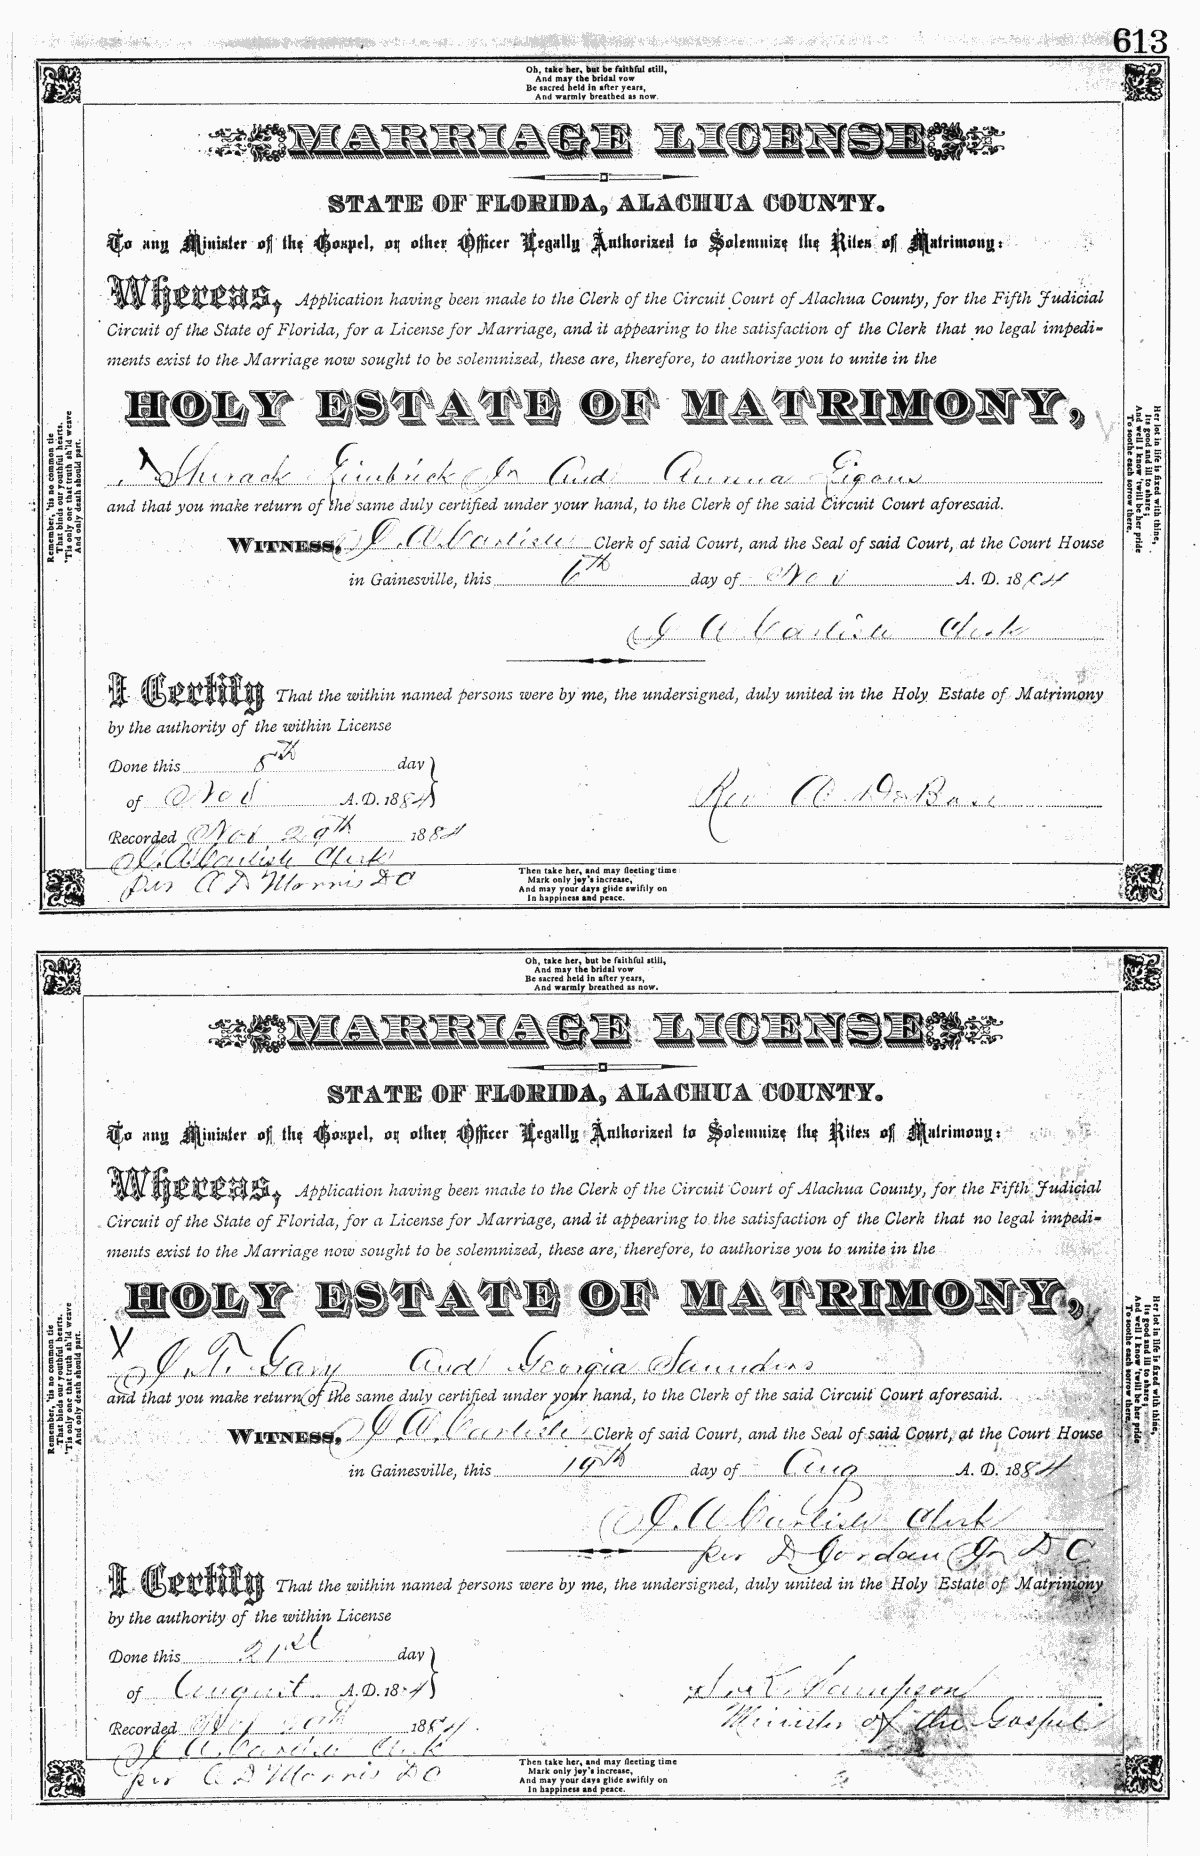 613
Oh, take her, but be faithful still,
And may the bridal vow
Be sacred held in after years,
And warmly breathed as now.
MARRIAGE LICENSE
STATE OF FLORIDA, ALACHUA COUNTY.
To any Minister of the Gospel, or other Officer Legally Authorized to Solemnize the Rites of Matrimony:
Whereas, Application having been made to the Clerk of the Circuit Court of Alachua County, for the Fifth Judicial
Circuit of the State of Florida, for a License for Marriage, and it appearing to the satisfaction of the Clerk that no legal impedi-
ments exist to the Marriage now sought to be solemnized, these are, therefore, to authorize you to unite in the
HOLY ESTATE OF MATRIMONY,
Jr And
and that you make return of the same duly certified under your hand, to the Clerk of the said Circuit Court aforesaid.
WITNESS, J. A. Carlisle Clerk of said Court, and the Seal of said Court, at the Court House
in Gainesville, this 6th day of Nov A. D. 1884
J A Carlisle Clerk
I Certify That the within named persons were by me, the undersigned, duly united in the Holy Estate of Matrimony
by the authority of the within License
Done this 8th day
of Nov A. D. 1884
Rev A DeBose
Recorded Nov 29th 1884
J. A Carlisle Clerk
per A D Morris DC
Remember, 'tis no common tie
That binds our youthful hearts.
'Tis only one that truth sh'ld weave
And only death should part.
Her lot in life is fixed with thine,
Its good and ill to share;
And well I know 'twill be her pride
To soothe each sorrow there.
Then take her, and may fleeting time
Mark only joy's increase,
And may your days glide swiftly on
In happiness and peace.
Oh, take her, but be faithful still,
And may the bridal vow
Be sacred held in after years,
And warmly breathed as now.
MARRIAGE LICENSE
STATE OF FLORIDA, ALACHUA COUNTY.
To any Minister of the Gospel, or other Officer Legally Authorized to Solemnize the Rites of Matrimony:
Whereas, Application having been made to the Clerk of the Circuit Court of Alachua County, for the Fifth Judicial
Circuit of the State of Florida, for a License for Marriage, and it appearing to the satisfaction of the Clerk that no legal impedi-
ments exist to the Marriage now sought to be solemnized, these are, therefore, to authorize you to unite in the
HOLY ESTATE OF MATRIMONY,
X J. T. Gary and Georgia Saunders
and that you make return of the same duly certified under your hand, to the Clerk of the said Circuit Court aforesaid.
WITNESS, J A Carlisle Clerk of said Court, and the Seal of said Court, at the Court House
in Gainesville, this 19th day of Aug A. D. 1884
J. A Carlisle Clerk
per D Jordan Jr D C
I Certify That the within named persons were by me, the undersigned, duly united in the Holy Estate of Matrimony
by the authority of the within License
Done this 21st day
of August A. D. 1884
Sampson
Minister of the Gospel
Recorded 1884
J A Carlisle Clerk
per A D Morris DC
Remember, 'tis no common tie
That binds our youthful hearts.
'Tis only one that truth sh'ld weave
And only death should part.
Her lot in life is fixed with thine,
Its good and ill to share;
And well I know 'twill be her pride
To soothe each sorrow there.
Then take her, and may fleeting time
Mark only joy's increase,
And may your days glide swiftly on
In happiness and peace.